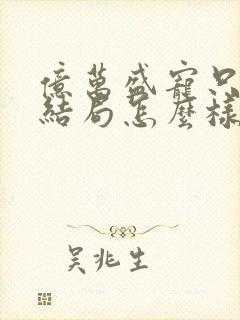 億萬盛寵只
結局怎麼樣
吳兆生